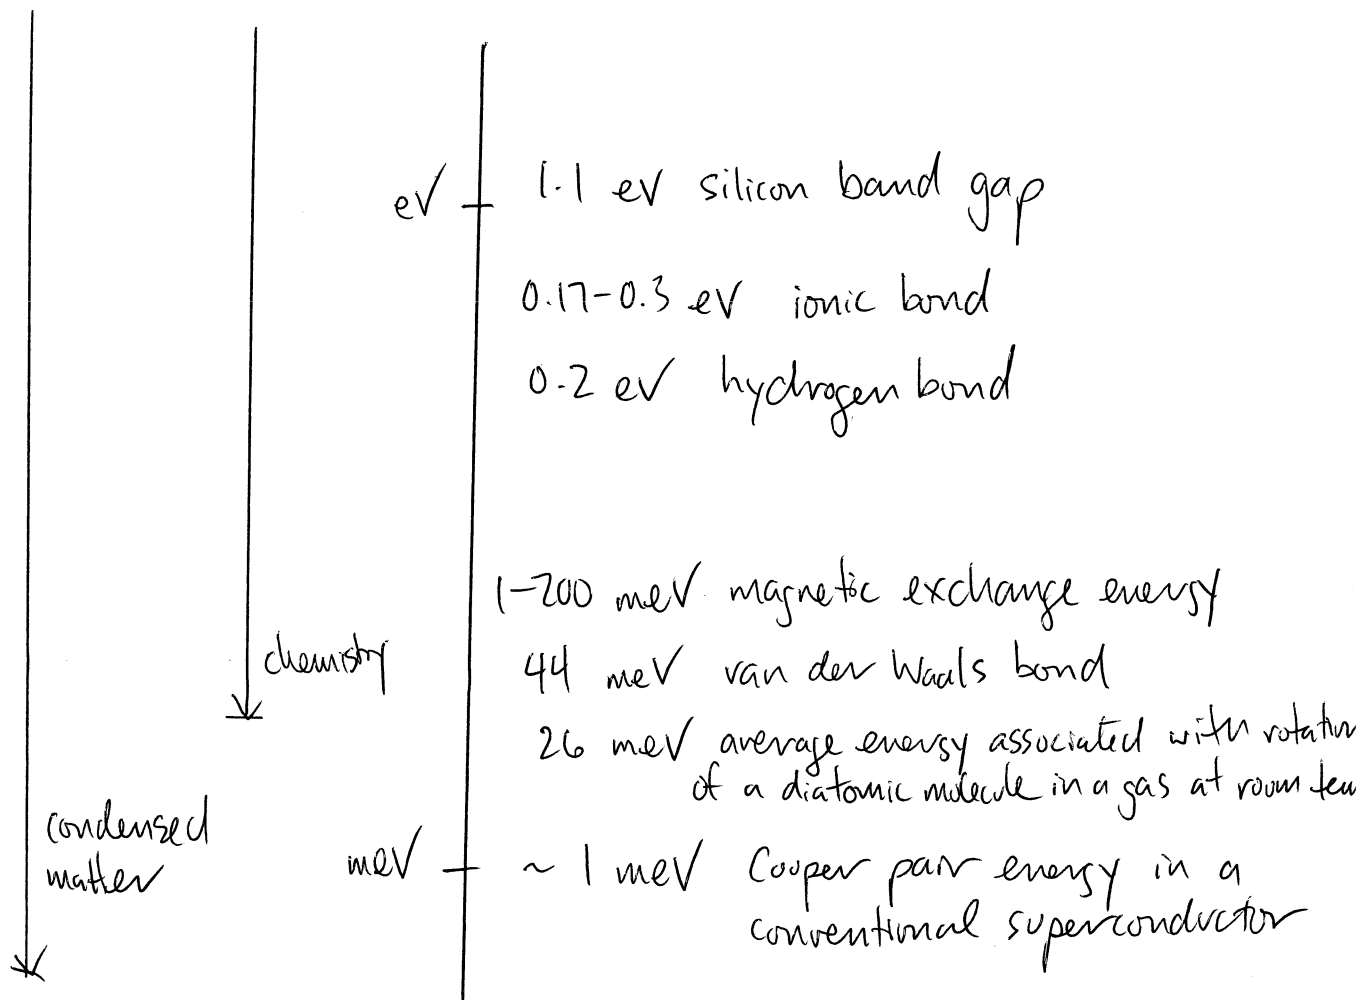 eV
1.1 eV silicon band gap
0.17-0.3 eV ionic bond
0.2 eV hydrogen bond
1-200 meV magnetic exchange energy
chemistry
44 meV van der Waals bond
26 meV average energy associated with
of a diatomic molecule in a gas at room
condensed
matter
meV
~ 1 meV Cooper pair energy in a
conventional superconductor